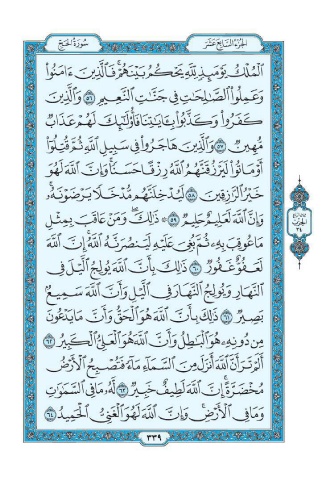 سورة الحج
الجزء السابع عشر
الْمُلْكُ يَوْمَئِذٍ لِلَّهِ يَحْكُمُ بَيْنَهُمْ فَالَّذِينَ ءَامَنُوا
وَعَمِلُوا الصَّالِحَاتِ فِي جَنَّاتِ النَّعِيمِ ٥٦ وَالَّذِينَ
كَفَرُوا وَكَذَّبُوا بِآيَاتِنَا فَأُولَئِكَ لَهُمْ عَذَابٌ
مُهِينٌ ٥٧ وَالَّذِينَ هَاجَرُوا فِي سَبِيلِ اللَّهِ ثُمَّ قُتِلُوا
أَوْ مَاتُوا لَيَرْزُقَنَّهُمُ اللَّهُ رِزْقًا حَسَنًا وَإِنَّ اللَّهَ لَهُوَ
خَيْرُ الرَّازِقِينَ ٥٨ لَيُدْخِلَنَّهُمْ مُدْخَلًا يَرْضَوْنَهُ
وَإِنَّ اللَّهَ لَعَلِيمٌ حَلِيمٌ ٥٩ ذَلِكَ وَمَنْ عَاقَبَ بِمِثْلِ
مَا عُوقِبَ بِهِ ثُمَّ بُغِيَ عَلَيْهِ لَيَنْصُرَنَّهُ اللَّهُ إِنَّ اللَّهَ
لَعَفُوٌّ غَفُورٌ ٦٠ ذَلِكَ بِأَنَّ اللَّهَ يُولِجُ اللَّيْلَ فِي
النَّهَارِ وَيُولِجُ النَّهَارَ فِي اللَّيْلِ وَأَنَّ اللَّهَ سَمِيعٌ
بَصِيرٌ ٦١ ذَلِكَ بِأَنَّ اللَّهَ هُوَ الْحَقُّ وَأَنَّ مَا يَدْعُونَ
مِنْ دُونِهِ هُوَ الْبَاطِلُ وَأَنَّ اللَّهَ هُوَ الْعَلِيُّ الْكَبِيرُ ٦٢
أَلَمْ تَرَ أَنَّ اللَّهَ أَنْزَلَ مِنَ السَّمَاءِ مَاءً فَتُصْبِحُ الْأَرْضُ
مُخْضَرَّةً إِنَّ اللَّهَ لَطِيفٌ خَبِيرٌ ٦٣ لَهُ مَا فِي السَّمَاوَاتِ
وَمَا فِي الْأَرْضِ وَإِنَّ اللَّهَ لَهُوَ الْغَنِيُّ الْحَمِيدُ ٦٤
الحزب
٣٤
٣٣٩